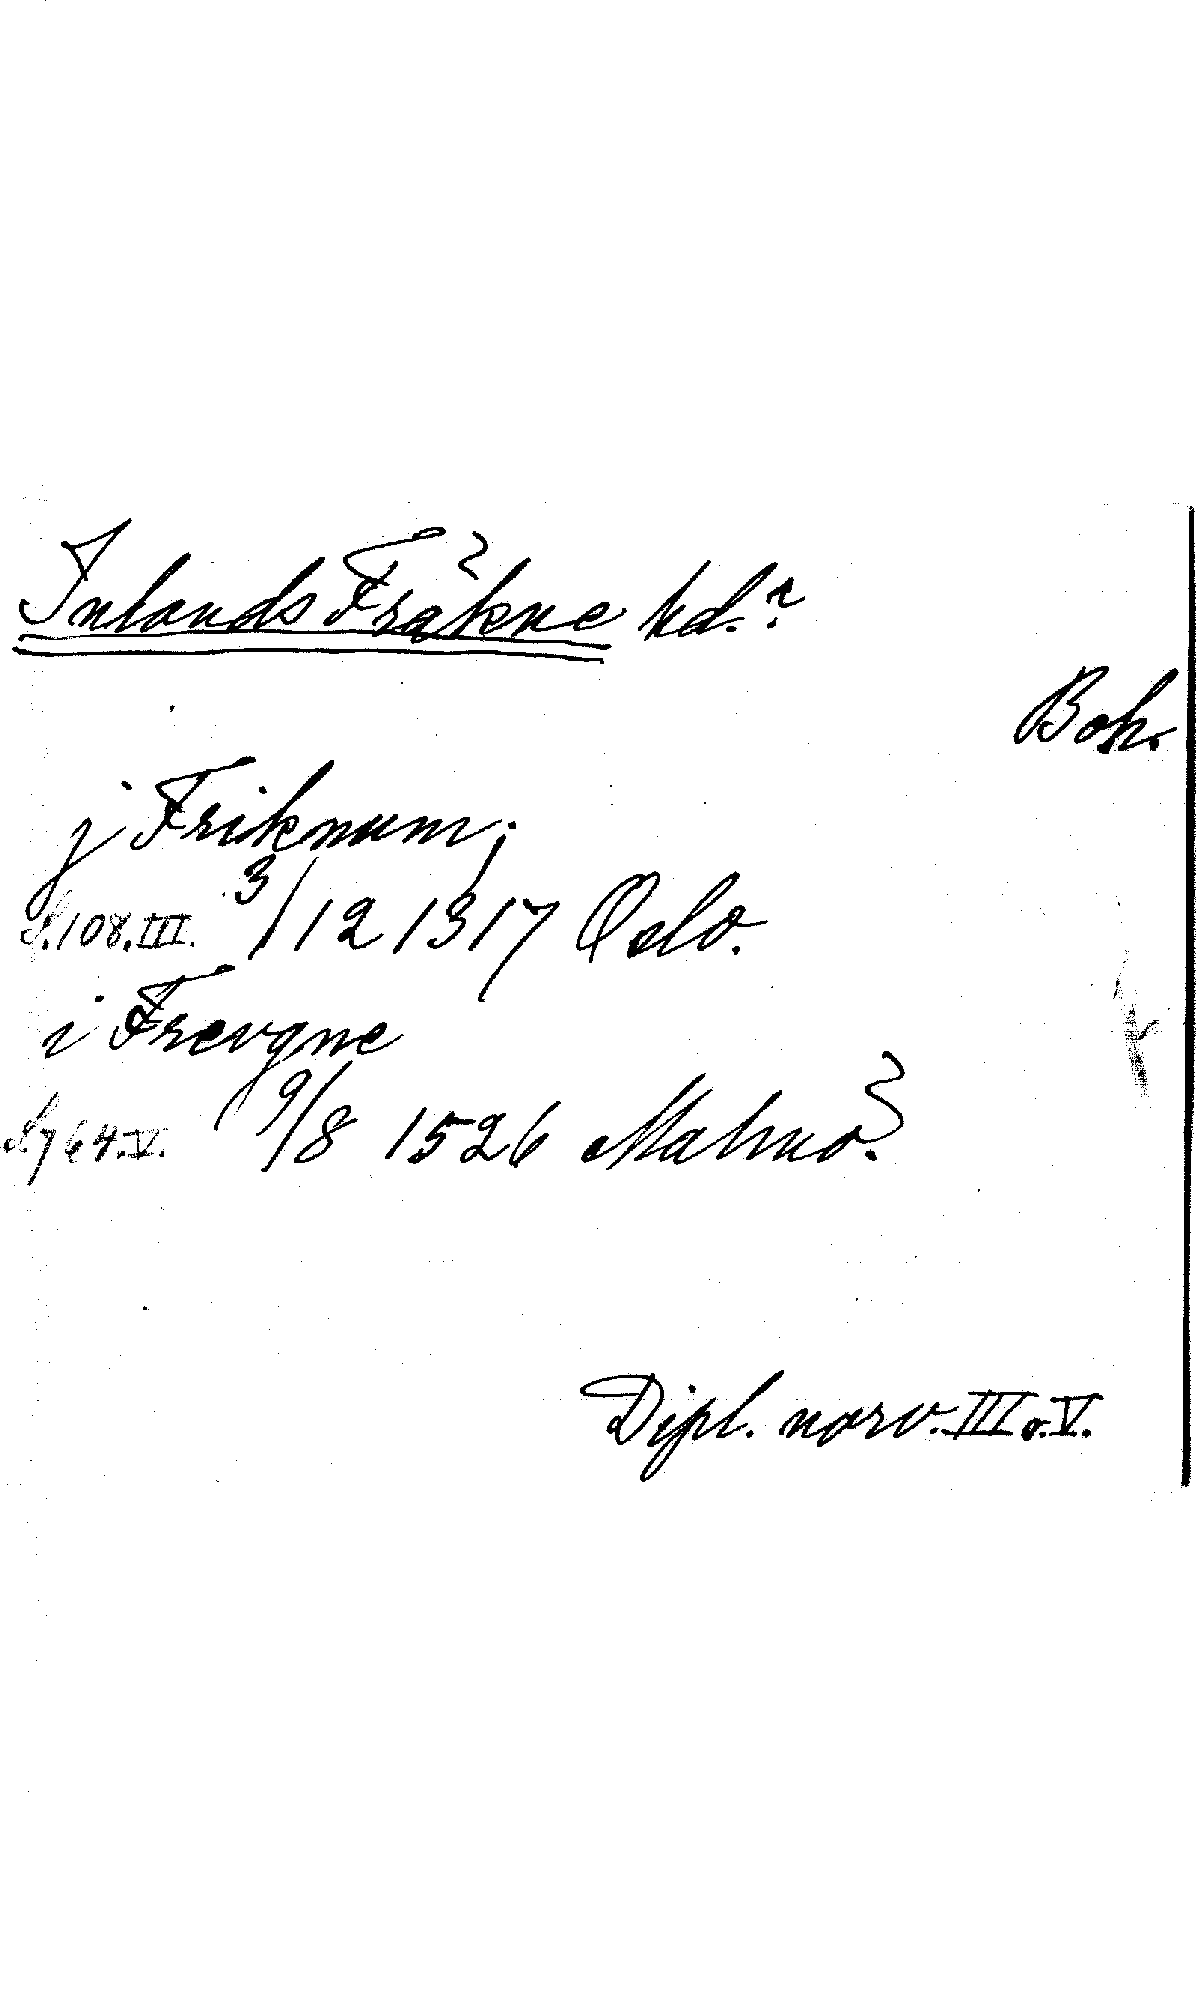 Inlands Fräkne hd.?
Boh.
j Friknum;
S. 108. III. 3/12 1317 Oslo.
i Frevgne
S. 764. V. 9/8 1526 Malmö.
Dipl. norv. III o. V.